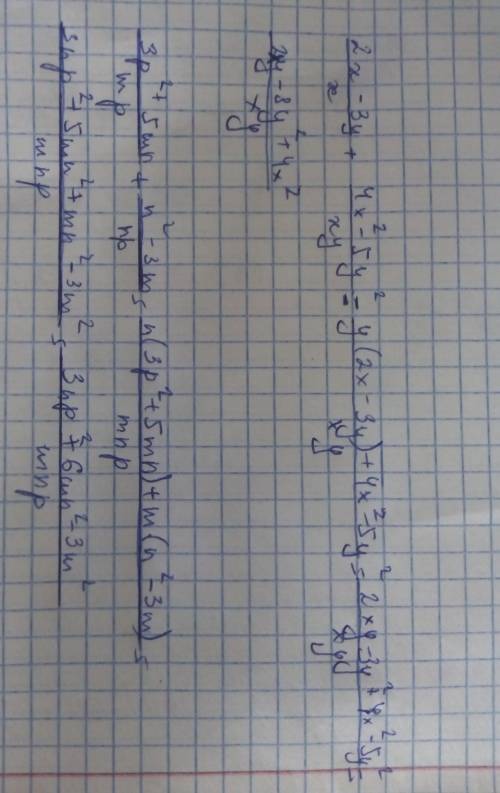 (2x - 3y)/x + (4x² - 5y²)/xy = (y(2x - 3y) + 4x² - 5y²)/xy = (2xy - 3y² + 4x² - 5y²)/xy =
(2xy - 8y² + 4x²)/xy
(3p² + 5mn)/mp + (n² - 3m)/np = (n(3p² + 5mn) + m(n² - 3m))/mnp =
(3np² + 5mn² + mn² - 3m²)/mnp = (3np² + 6mn² - 3m²)/mnp